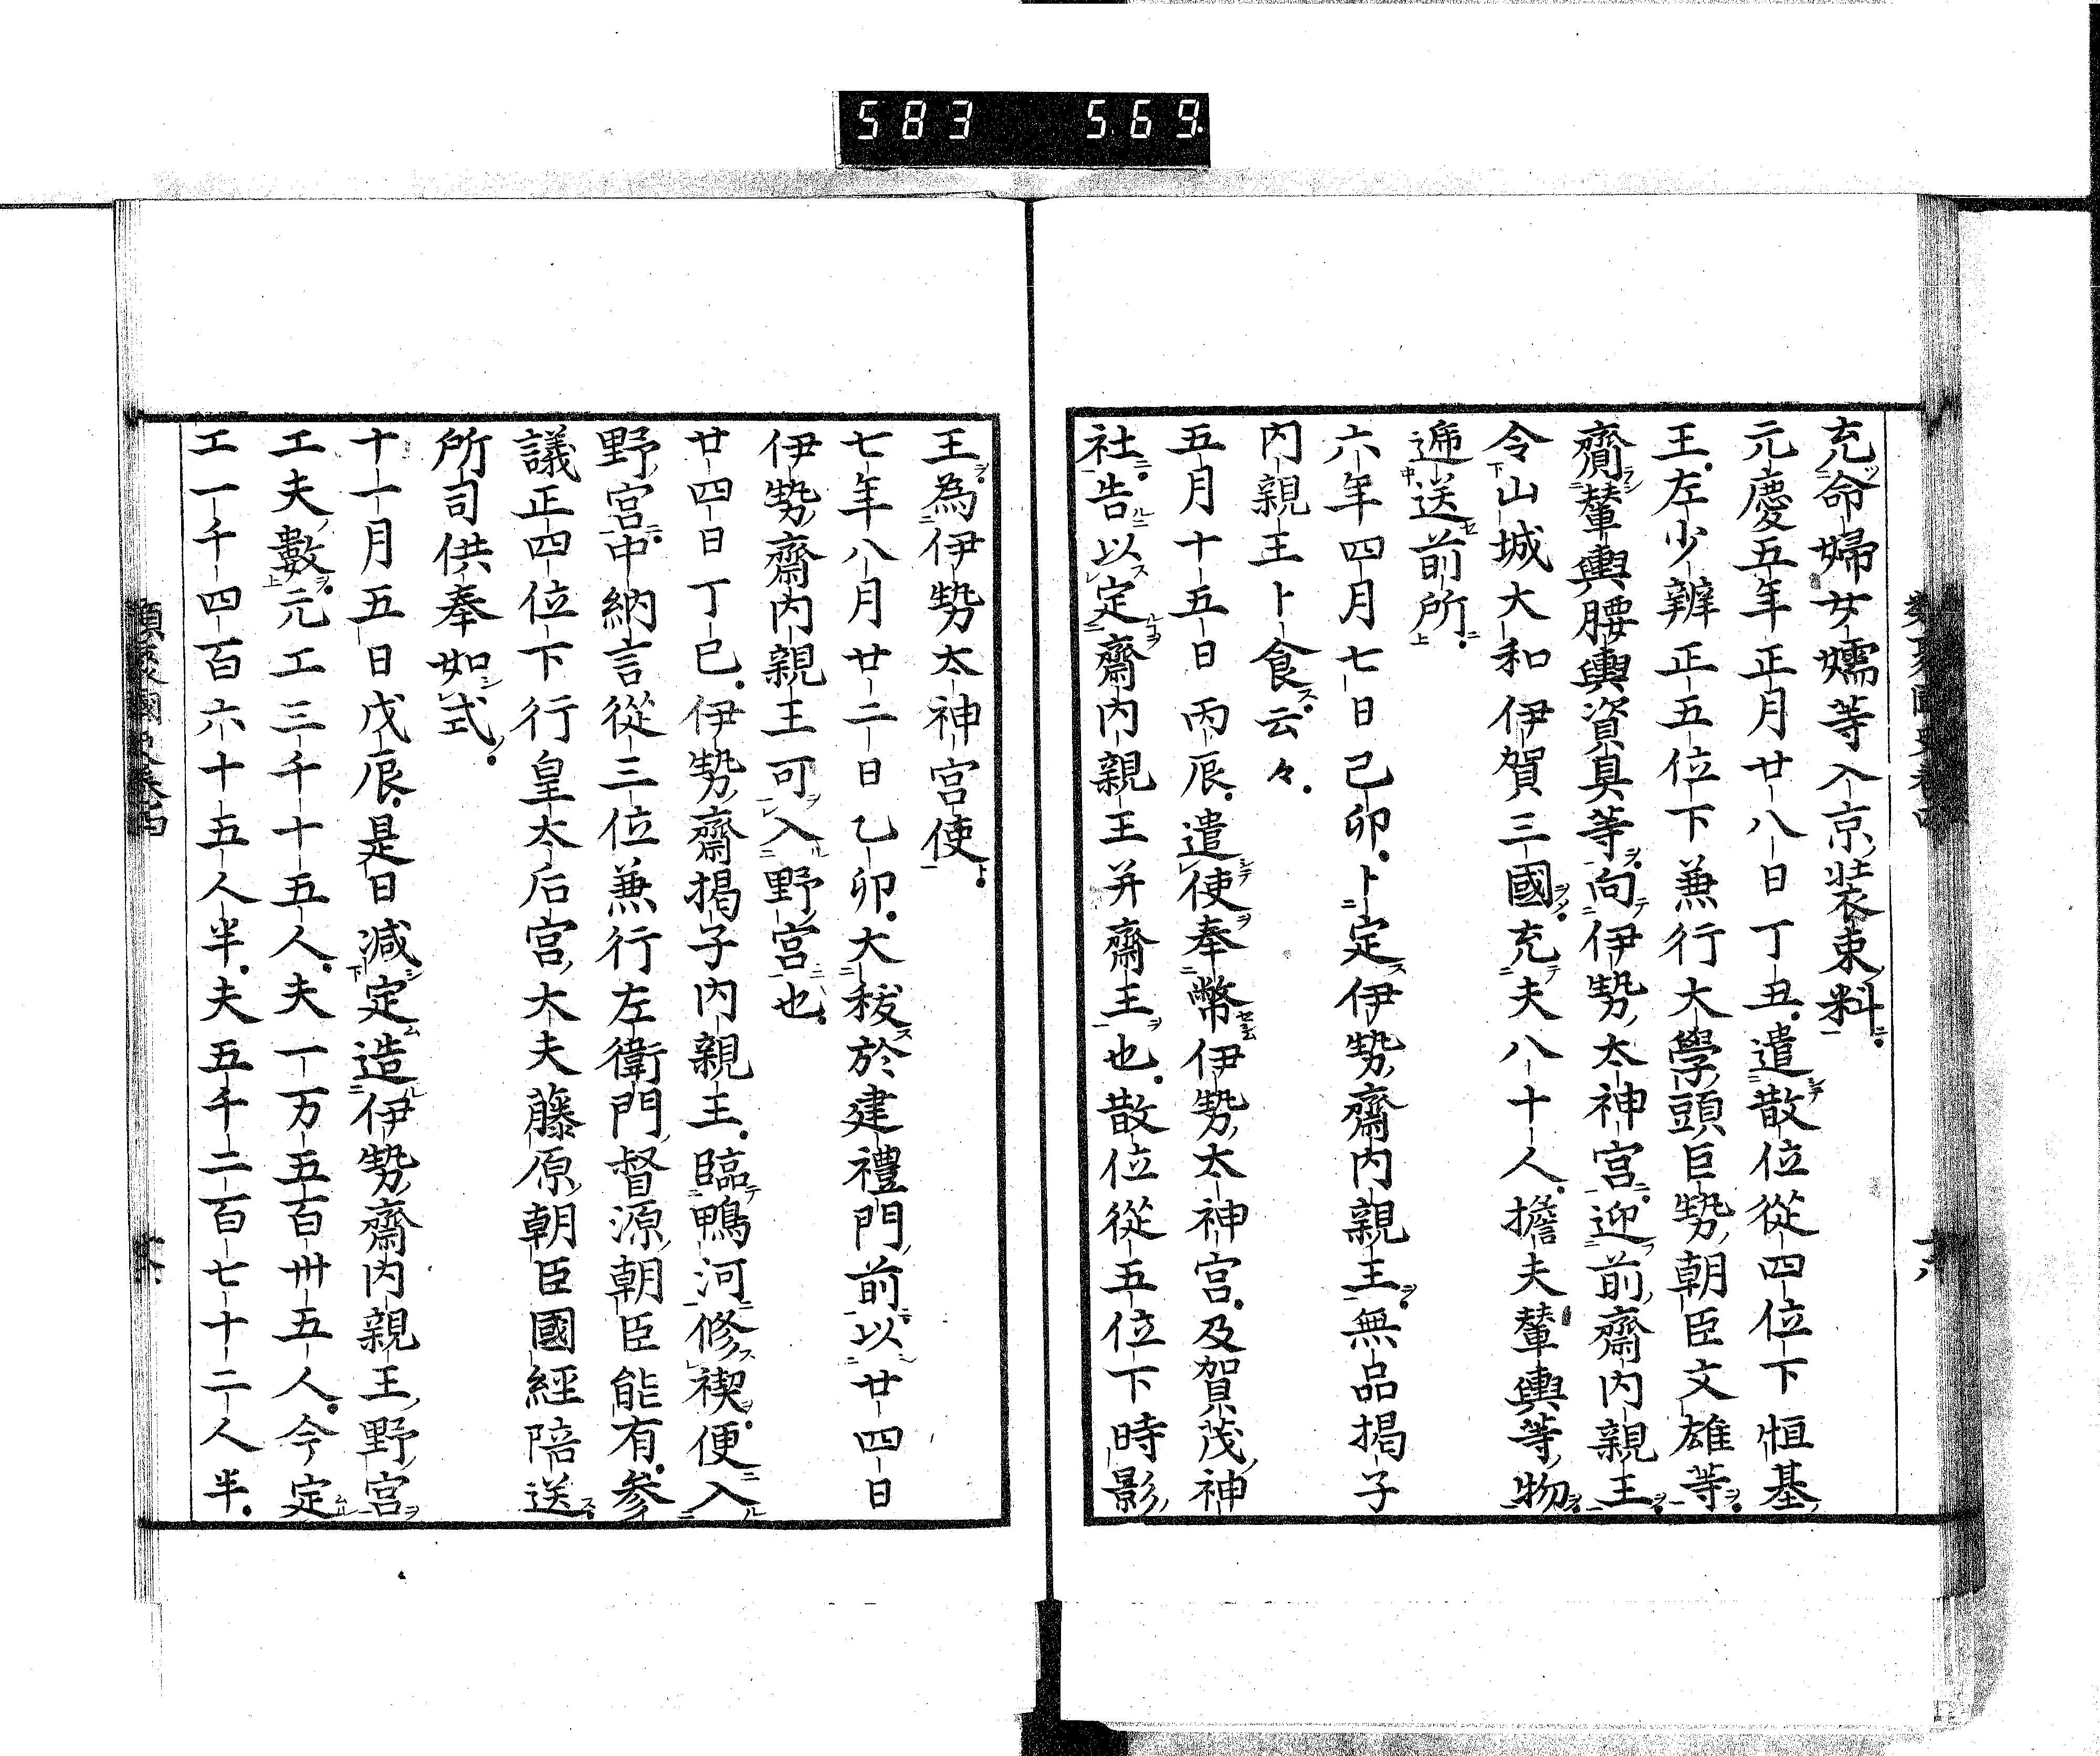 583 569
充命婦女嬬等入京装束料
元慶五年正月廿八日丁丑遣散位從四位下恒基
王左少辨正五位下兼行大學頭巨勢朝臣文雄等
齎輦輿腰輿資具等向伊勢太神宮迎前齋内親王
令山城大和伊賀三國充夫八十人擔夫輦輿等物
遞送前所
六年四月七日己卯卜定伊勢齋内親王無品掲子
内親王卜食云々
五月十五日丙辰遣使奉幣伊勢太神宮及賀茂神
社告以定齋内親王并齋王也散位從五位下時影
王為伊勢太神宮使
七年八月廿二日乙卯大秡於建禮門前以廿四日
伊勢齋内親王可入野宮也
廿四日丁巳伊勢齋掲子内親王臨鴨河修禊便入
野宮中納言從三位兼行左衛門督源朝臣能有參
議正四位下行皇太后宮大夫藤原朝臣國經陪送
所司供奉如式
十一月五日戊辰是日減定造伊勢齋内親王野宮
工夫數元工三千十五人夫一万五百卅五人今定
工一千四百六十五人半夫五千二百七十二人半